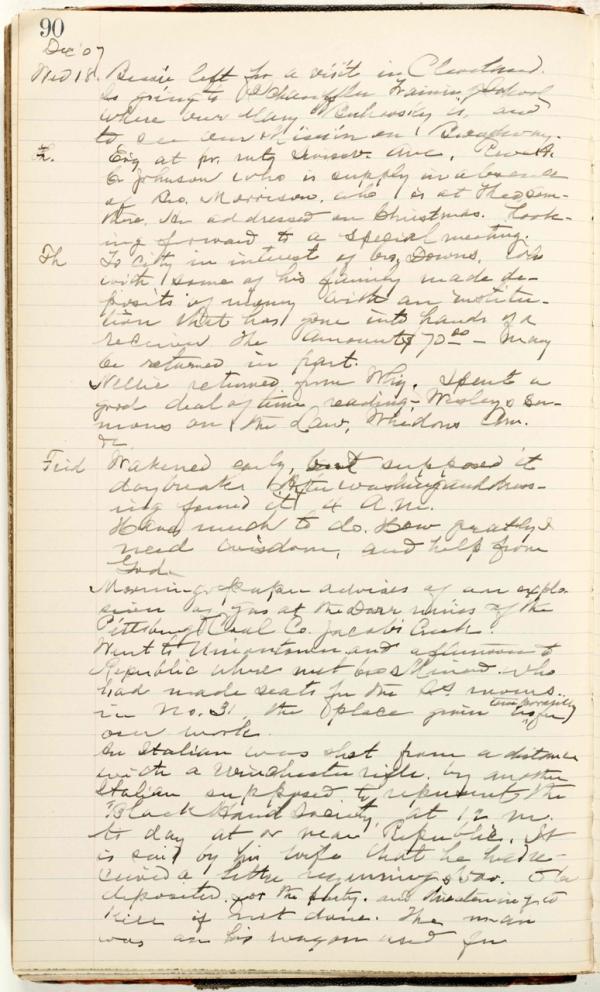 90
Dec 07
Wed 18. Bessie left for a visit in Cleveland.
Is going to Training School
where our Mary is, and
to see our Mission on Broadway.
Th. Eng at pr. mtg Ave. Rev.
C. Johnson who is supply in absence
of Bro. Morrison, who is at the
He addressed on Christmas. Look-
ing forward to a special meeting.
Th To city in interest of bro. Downs. Who
with some of his family made de-
posits of money with an institu-
tion that has gone into hands of a
receiver. The amount $70.00 - May
be returned in part.
Nellie returned from Whg. Spent a
good deal of time reading - Wesley's ser-
mons on the Law,
&c
Frid Wakened early, but supposed it
daybreak. After washing and dress-
ing found it 4 A.M.
Have much to do. How greatly I
need wisdom, and help from
God.
Morning paper advises of an explo-
sion of gas at the Darr mines of the
Pittsburg Coal Co. Jacobs Creek.
Went to Uniontown and afternoon to
Republic where met bro who
had made seats for the rooms
in No. 3, the place given (temporarily
for)
our work.
An Italian was shot from a distance
with a Winchester rifle, by another
Italian supposed to represent the
"Black Hand Society, at 12 m.
to day at or near Republic. It
is said by his wife that he had re-
ceived a letter requiring to be
deposited for the party and threatening to
kill if not done. The man
was on his wagon and